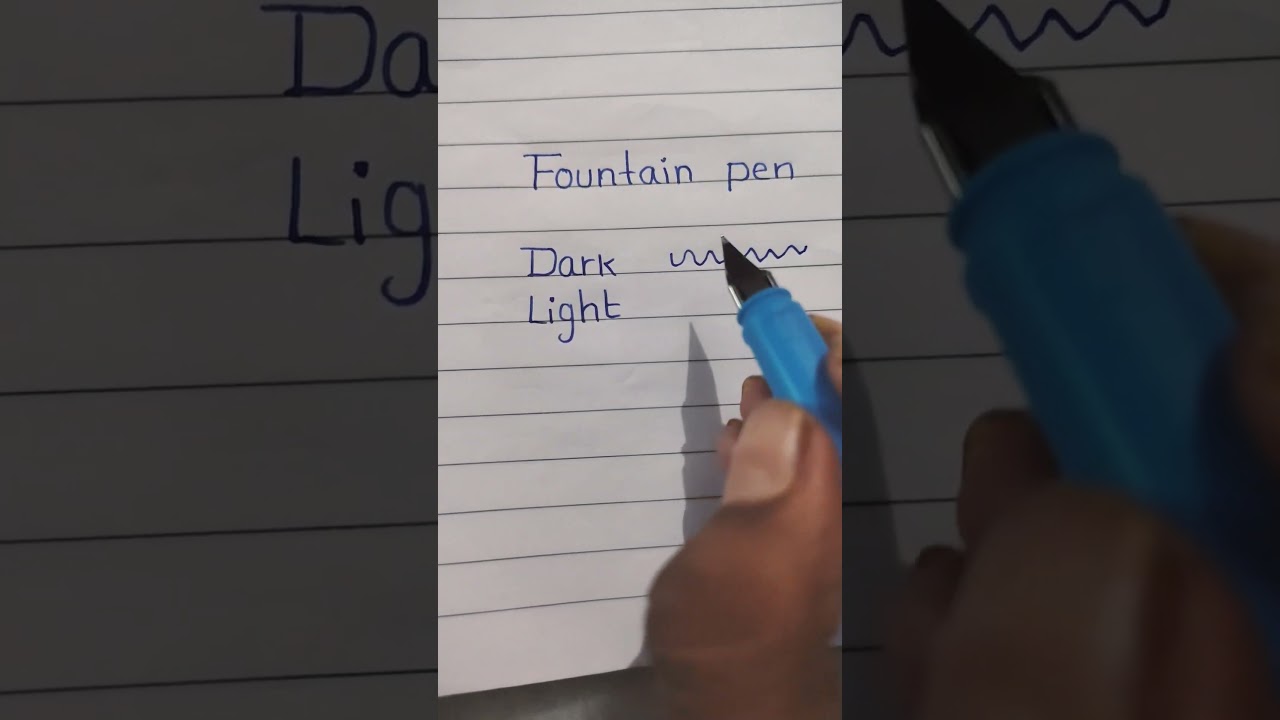 Fountain pen
Dark
Light